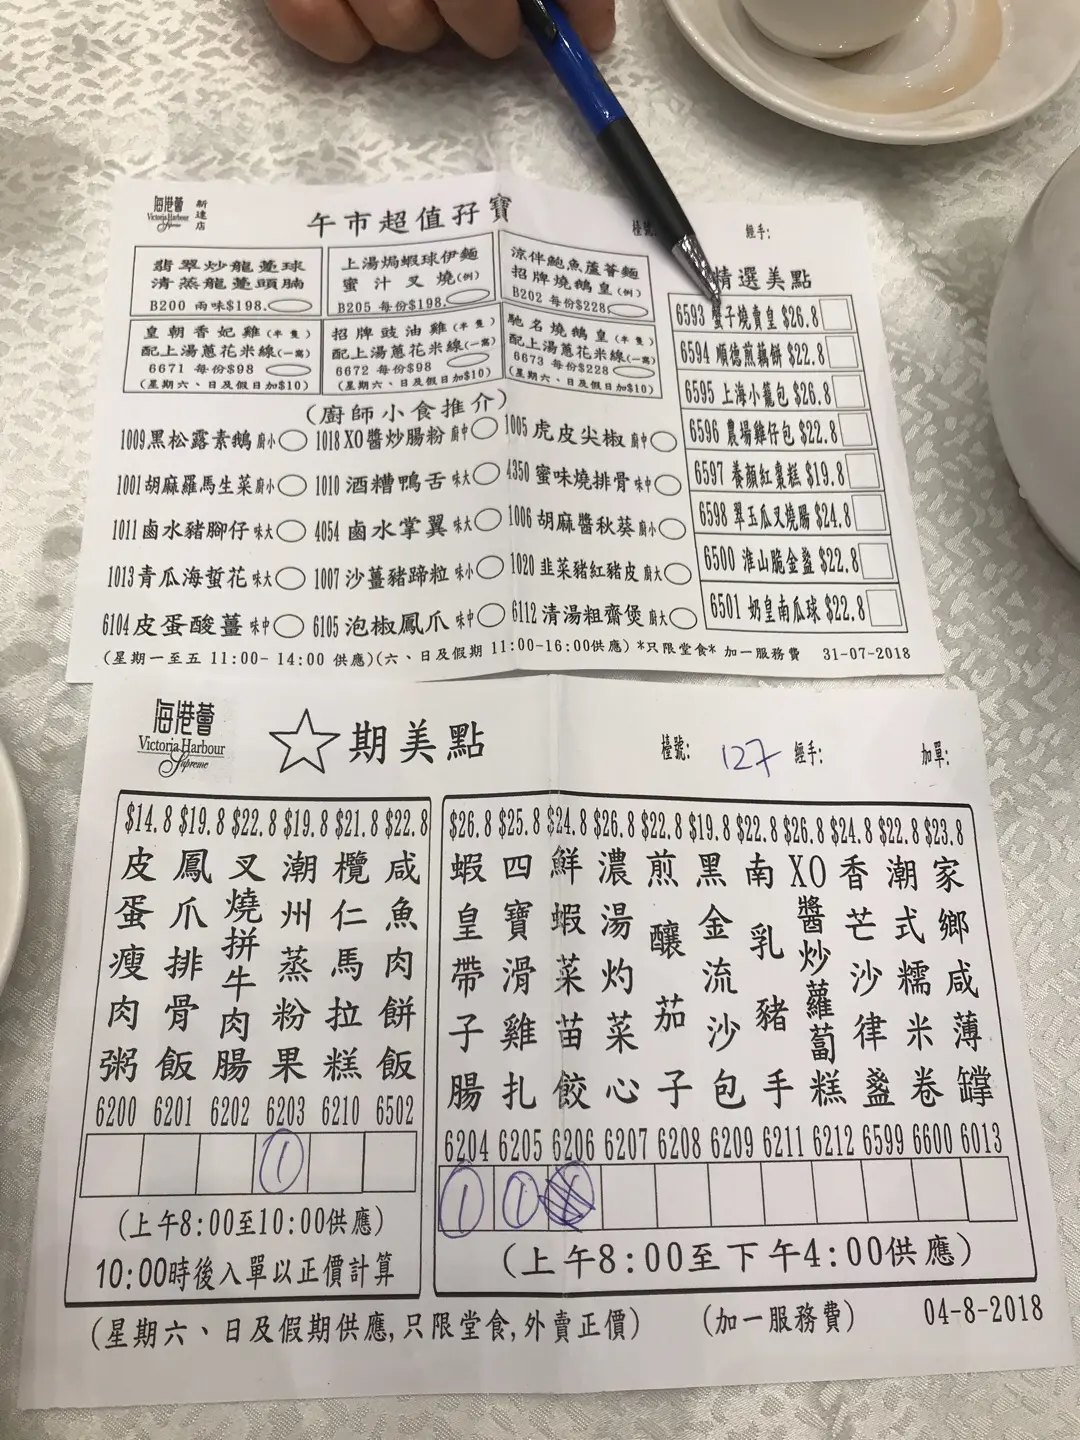 海港薈
Victoria Harbour
Supreme
新達店
午市超值孖寶
檯號:
經手:
翡翠炒龍躉球
清蒸龍躉頭腩
B200 兩味$198.
上湯焗蝦球伊麵
蜜汁叉燒(例)
B205 每份$198.
涼伴鮑魚蘆薈麵
招牌燒鵝皇(例)
B202 每份$228.
皇朝香妃雞(半隻)
配上湯蔥花米線(一窩)
6671 每份$98
(星期六、日及假日加$10)
招牌豉油雞(半隻)
配上湯蔥花米線(一窩)
6672 每份$98
(星期六、日及假日加$10)
馳名燒鵝皇(半隻)
配上湯蔥花米線(一窩)
6673 每份$228
(星期六、日及假日加$10)
(廚師小食推介)
1009黑松露素鵝 廚小
1018 XO醬炒腸粉 廚中
1005 虎皮尖椒 廚中
1001胡麻羅馬生菜 廚小
1010 酒糟鴨舌 味大
4350 蜜味燒排骨 味中
1011 鹵水豬腳仔 味大
4054 鹵水掌翼 味大
1006 胡麻醬秋葵 廚小
1013 青瓜海蜇花 味大
1007 沙薑豬蹄粒 味小
1020 韭菜豬紅豬皮 廚大
6104 皮蛋酸薑 味中
6105 泡椒鳳爪 味中
6112 清湯粗齋煲 廚大
精選美點
6593 蟹子燒賣皇 $26.8
6594 順德煎藕餅 $22.8
6595 上海小籠包 $26.8
6596 農場雞仔包 $22.8
6597 養顏紅棗糕 $19.8
6598 翠玉瓜叉燒腸 $24.8
6500 淮山脆金盞 $22.8
6501 奶皇南瓜球 $22.8
(星期一至五 11:00- 14:00 供應)(六、日及假期 11:00-16:00供應) *只限堂食* 加一服務費 31-07-2018
海港薈
Victoria Harbour
Supreme
☆期美點
檯號: 127 經手: 加單:
$14.8 $19.8 $22.8 $19.8 $21.8 $22.8
皮蛋瘦肉粥
鳳爪排骨飯
叉燒拼牛肉腸
潮州蒸粉果
欖仁馬拉糕
咸魚肉餅飯
6200 6201 6202 6203 6210 6502
1
(上午8:00至10:00供應)
10:00時後入單以正價計算
$26.8 $25.8 $24.8 $26.8 $22.8 $19.8 $22.8 $26.8 $24.8 $22.8 $23.8
蝦皇帶子腸
四寶滑雞扎
鮮蝦菜苗餃
濃湯灼菜心
煎釀茄子
黑金流沙包
南乳豬手
XO醬炒蘿蔔糕
香芒沙律盞
潮式糯米卷
家鄉咸薄罉
6204 6205 6206 6207 6208 6209 6211 6212 6599 6600 6013
1 1
(上午8:00至下午4:00供應)
(星期六、日及假期供應,只限堂食,外賣正價) (加一服務費) 04-8-2018